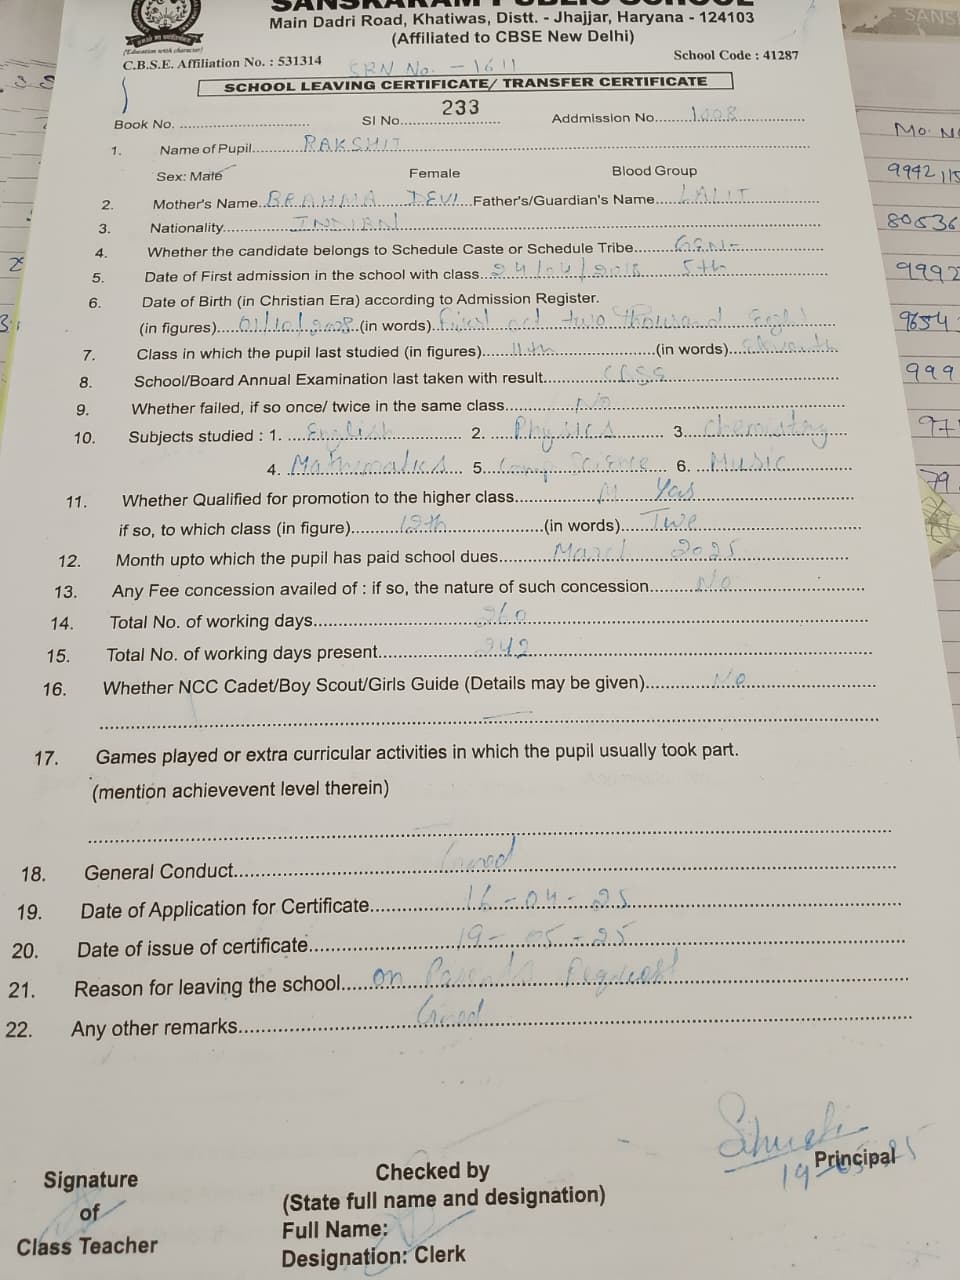 SANSKARAM PUBLIC SCHOOL
Main Dadri Road, Khatiwas, Distt. - Jhajjar, Haryana - 124103
(Affiliated to CBSE New Delhi)
(Education with character)
C.B.S.E. Affiliation No. : 531314
School Code : 41287
SRN No. - 1611
SCHOOL LEAVING CERTIFICATE/ TRANSFER CERTIFICATE
Book No. SI No. 233 Addmission No. 1008
1. Name of Pupil RAKSHIT
Sex: Male Female Blood Group
2. Mother's Name BRAHMA DEVI Father's/Guardian's Name LALIT
3. Nationality INDIAN
4. Whether the candidate belongs to Schedule Caste or Schedule Tribe GEN-
5. Date of First admission in the school with class 24/04/2018 5th
6. Date of Birth (in Christian Era) according to Admission Register.
(in figures) 01/10/2008 (in words) First oct two thousand Eight
7. Class in which the pupil last studied (in figures) 11th (in words) Eleventh
8. School/Board Annual Examination last taken with result
9. Whether failed, if so once/ twice in the same class No
10. Subjects studied : 1. English 2. Physics 3. Chemistry
4. Mathematics 5. Comp Science 6. Music
11. Whether Qualified for promotion to the higher class Yas
if so, to which class (in figure) 12th (in words) Twe
12. Month upto which the pupil has paid school dues March 2025
13. Any Fee concession availed of : if so, the nature of such concession No
14. Total No. of working days 260
15. Total No. of working days present 242
16. Whether NCC Cadet/Boy Scout/Girls Guide (Details may be given) No
17. Games played or extra curricular activities in which the pupil usually took part.
(mention achievevent level therein)
18. General Conduct Good
19. Date of Application for Certificate 16-04-25
20. Date of issue of certificate 19-05-25
21. Reason for leaving the school on Parents Request
22. Any other remarks Good
Signature
of
Class Teacher
Checked by
(State full name and designation)
Full Name:
Designation: Clerk
Principal
19-05-25
Mo. No
9942115
80536
9992
9654
999
97
79